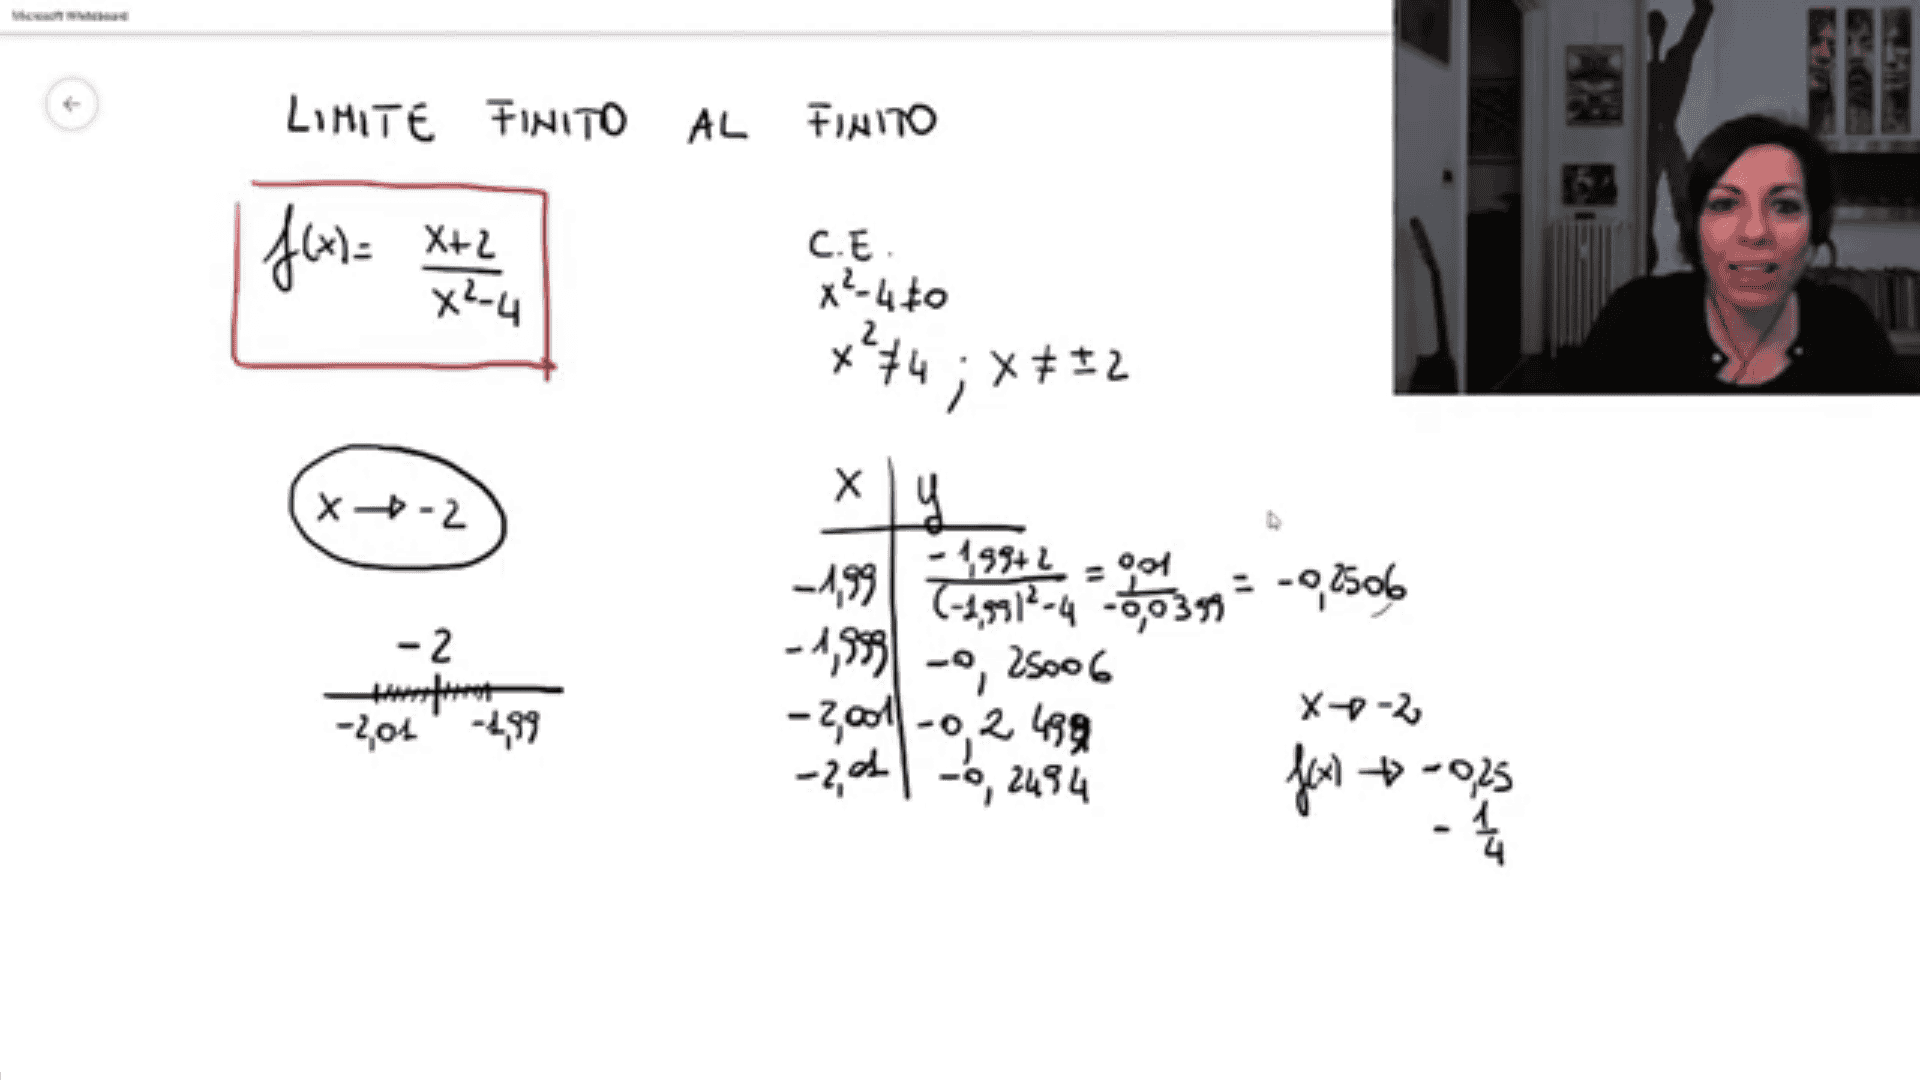 Microsoft Whiteboard
LIMITE FINITO AL FINITO
f(x)= x+2 / x²-4
C.E.
x²-4≠0
x²≠4 ; x ≠ ±2
x → -2
x | y
-1,99 | -1,99+2 / (-1,99)²-4 = 0,01 / -0,0399 = -0,2506
-1,999 | -0,25006
-2,001 | -0,2499
-2,01 | -0,2494
-2
-2,01 -1,99
x → -2
f(x) → -0,25
- 1/4